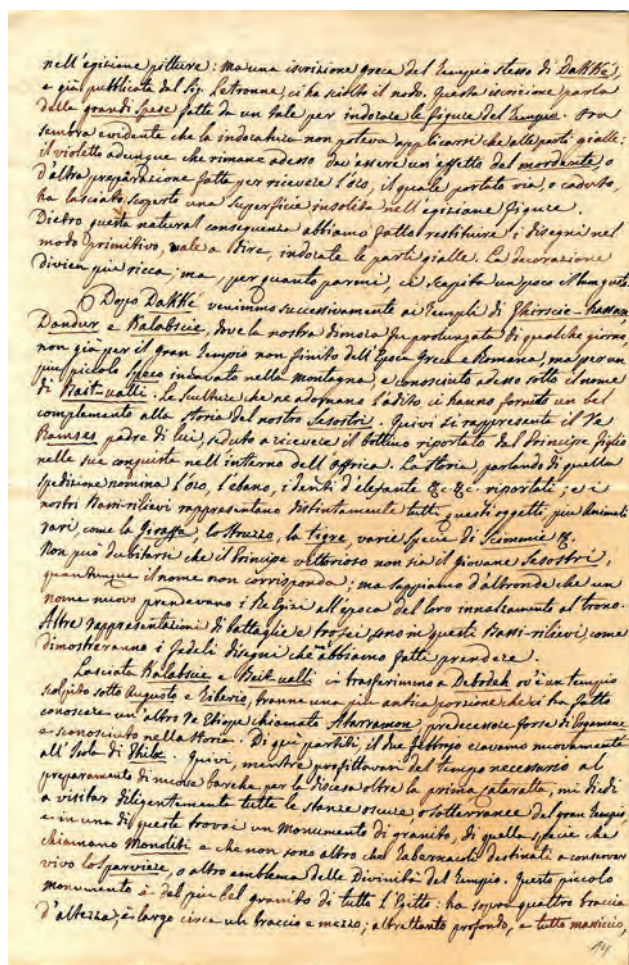 nell'egiziane pitture: ma una iscrizione greca del Tempio stesso di Dakké,
e già pubblicata dal Sig. Letronne, ci ha sciolto il nodo. Questa iscrizione parla
delle grandi spese fatte da un tale per indorare le figure del Tempio. Ora
sembra evidente che la indoratura non poteva applicarsi che alle parti gialle:
il violetto adunque che rimane adesso dev'essere un'effetto del mordente, o
d'altra preparazione fatta per ricevere l'oro, il quale portato via, o caduto,
ha lasciato scoperto una superficie insolita nell'egiziane figure.
Dietro questa natural conseguenza abbiamo fatto restituire i disegni nel
modo primitivo, vale a dire, indorate le parti gialle. La decorazione
divien più ricca; ma, per quanto parmi, ci scapita un poco il buon gusto.
Dopo Dakké venimmo successivamente ai Templi di Ghirscie-Hassan,
Dandur e Kalabscie, dove la nostra dimora fu prolungata di qualche giorno,
non già per il gran Tempio non finito dell'Epoca Greca e Romana, ma per un
più piccolo Speco incavato nella montagna, e conosciuto adesso sotto il nome
di Bait-ualli. Le Sculture che ne adornano l'àdito ci hanno fornito un bel
complemento alla storia del nostro Sesostri. Quivi si rappresenta il Re
Ramses padre di lui, seduto a ricevere il bottino riportato dal Principe figlio
nelle sue conquiste nell'interno dell'Affrica. La storia, parlando di quella
spedizione nomina l'oro, l'ebano, i denti d'elefante &c. &c. riportati; e i
nostri Bassi-rilievi rappresentano distintamente tutti questi oggetti, più Animali
rari, come la Giraffa, lo struzzo, la tigre, varie specie di Scimmie &.
Non può dubitarsi che il Principe vittorioso non sia il giovane Sesostri,
quantunque il nome non corrisponda; ma sappiamo d'altronde che un
nome nuovo prendevano i Re Egizi all'epoca del loro innalzamento al trono.
Altre rappresentazioni di battaglie e trofei sono in questi Bassi-rilievi, come
dimostreranno i fedeli disegni che ne abbiamo fatti prendere.
Lasciata Kalabscie e Beit-ualli ci trasferimmo a Debodeh ov'è un tempio
scolpito sotto Augusto e Tiberio, tranne una più antica porzione che ci ha fatto
conoscere un'altro Re Etiope chiamato Atarramon, predecessore forse di Ergamene
e sconosciuto nella storia. Di qui partiti, il due Febbrajo eravamo nuovamente
all'Isola di File. Quivi, mentre profittavasi del tempo necessario al
preparamento di nuove barche per la discesa oltre la prima Cataratta, mi diedi
a visitar diligentemente tutte le stanze oscure, o sotterranee del gran Tempio,
e in una di queste trovai un monumento di granito, di quella specie che
chiamano Monoliti e che non sono altro che Tabernacoli destinati a conservar
vivo lo sparviere, o altro emblema delle Divinità del Tempio. Questo piccolo
monumento è del più bel granito di tutto l'Egitto: ha sopra quattro braccia
d'altezza; è largo circa un braccio e mezzo; altrettanto profondo, e tutto massiccio,